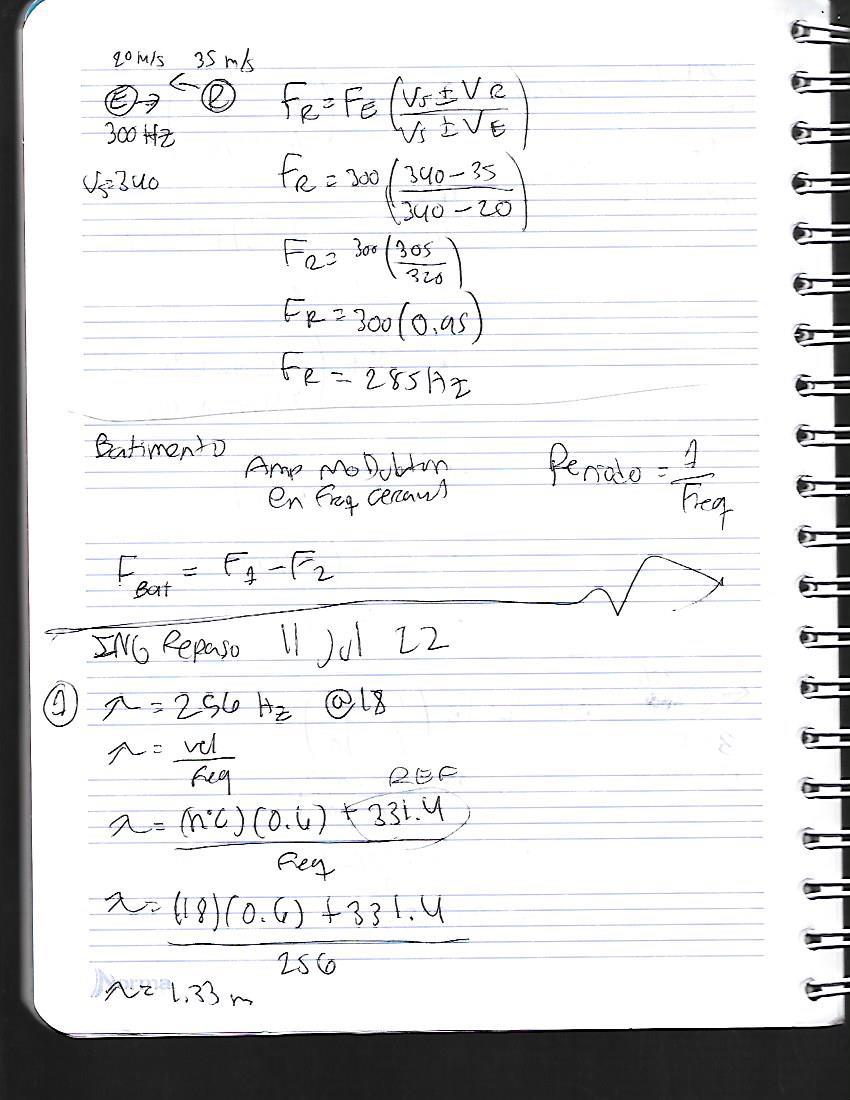 20 M/s 35 m/s
E R
300 Hz
Vs=340
FR = FE (Vs ± VR / Vs ± VE)
FR = 300 (340 - 35 / 340 - 20)
FR = 300 (305 / 320)
FR = 300 (0.95)
FR = 285 Hz
Batimento
Amp
en Freq
Periodo = 1 / Freq
F Bat = F1 - F2
ING Repaso 11 Jul 22
① λ = 256 Hz @18
λ = vel / Freq
REF
λ = (n°C)(0.6) + 331.4 / Freq
λ = (18)(0.6) + 331.4 / 256
Norma
λ = 1.33 m